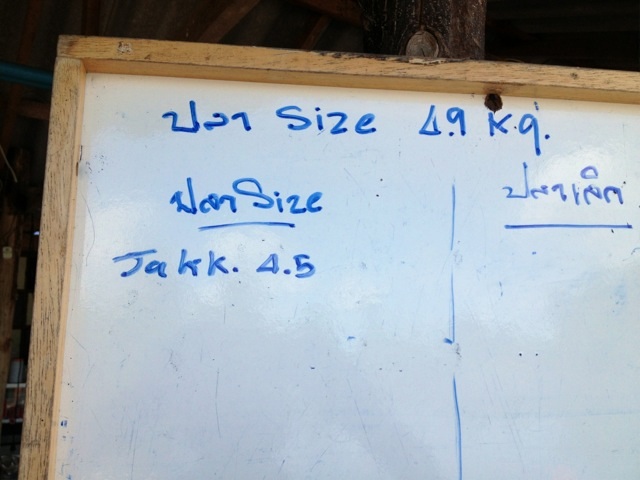 ปลา Size 4.9 K.g.
ปลา Size
Jakk. 4.5
ปลาเลิศ